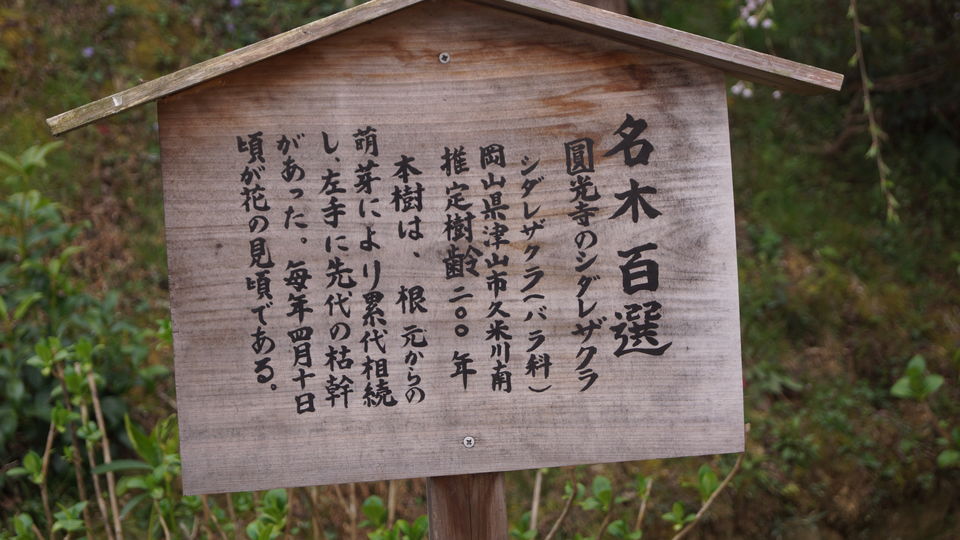 名木百選
圓光寺のシダレザクラ
シダレザクラ(バラ科)
岡山県津山市久米川南
推定樹齢二〇〇年
本樹は、根元からの
萌芽により累代相続
し、左手に先代の枯幹
があった。毎年四月十日
頃が花の見頃である。